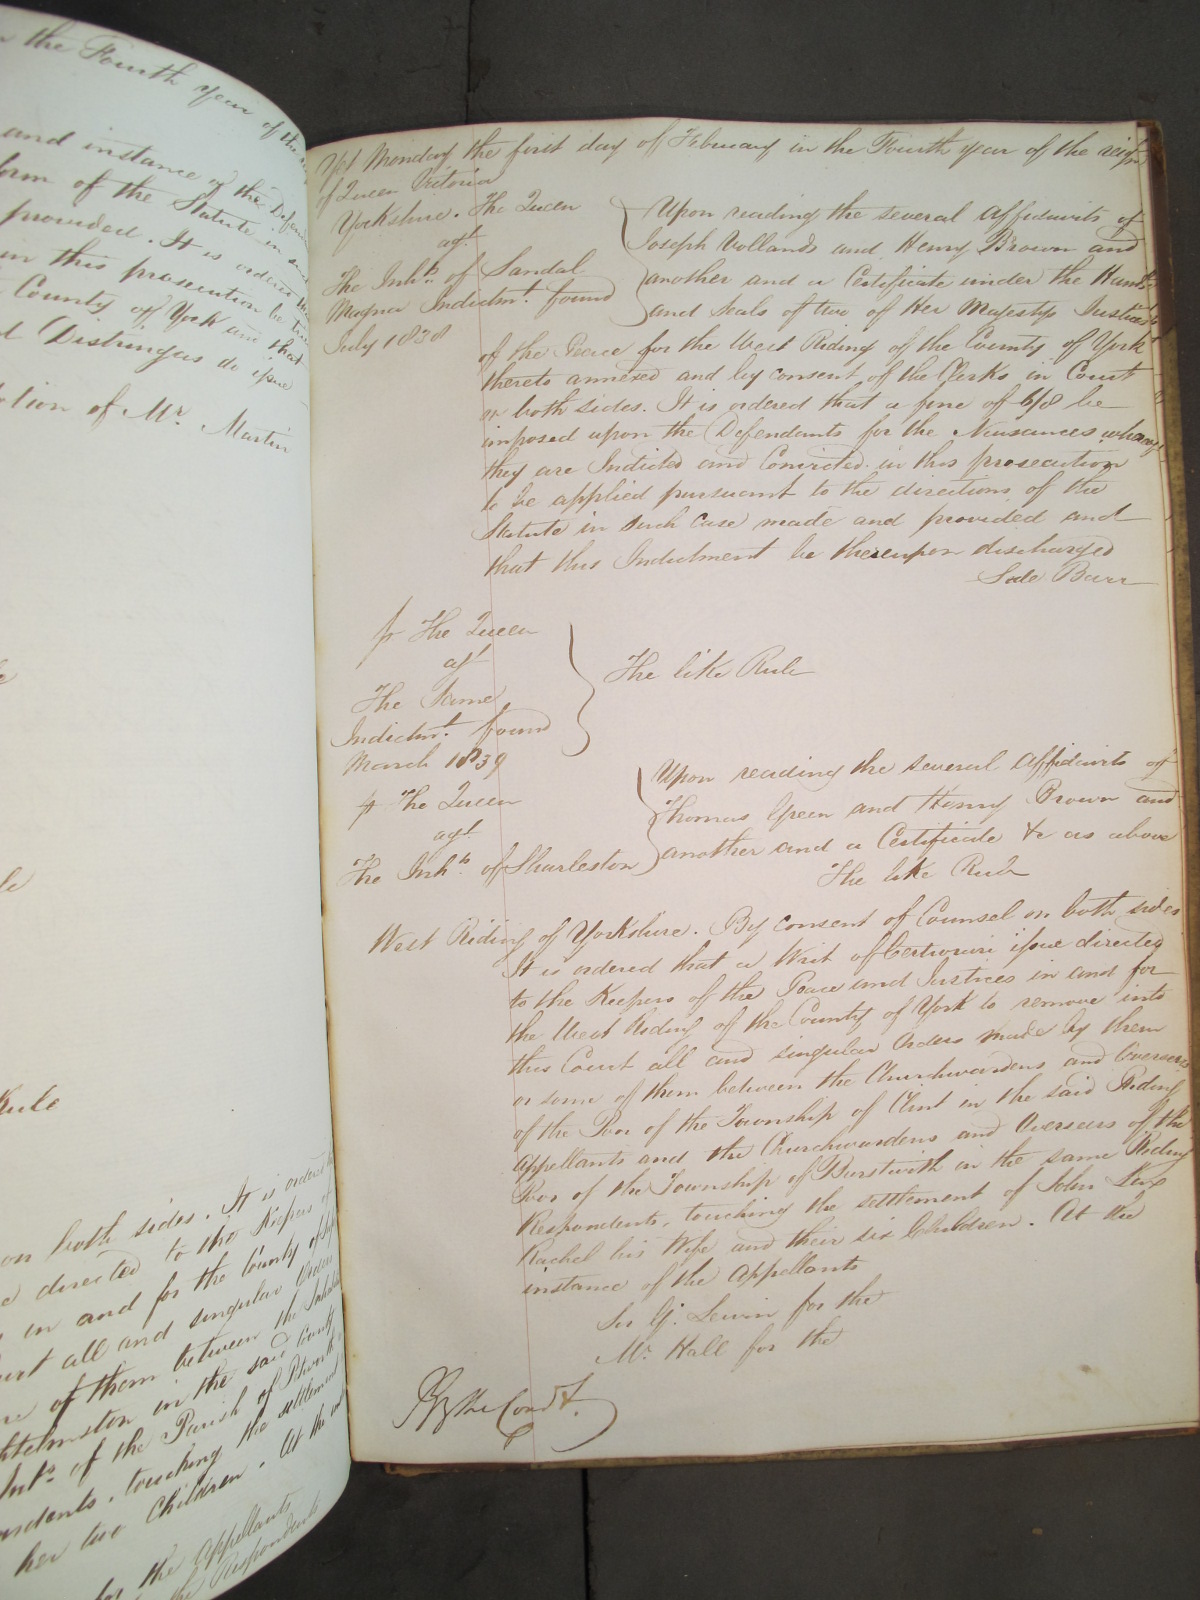 the Fourth year of the
and instance of the
form of the Statute in
provided. It is ordered
in this prosecution be
County of York and that
Distringas do issue
motion of Mr. Martin
Rule
on both sides. It is ordered
directed to the Keepers of
in and for the County of
all and singular Orders
of them between the
in the said County
of the Parish of
touching the settlement
her two Children. At the
for the Appellants
the Respondents
Yet Monday the first day of February in the Fourth year of the reign
of Queen Victoria
Yorkshire. The Queen
agt
The Inhts. of Sandal
Magna Indictmt. found
July 1838
Upon reading the several Affidavits of
Joseph Vollands and Henry Brown and
another and a Certificate under the Hands
and Seals of two of Her Majestys Justices
of the Peace for the West Riding of the County of York
thereto annexed and by consent of the Clerks in Court
on both sides. It is ordered that a fine of 6/8 be
imposed upon the Defendants for the Neusances whereof
they are Indicted and Convicted in this prosecution
to be applied pursuant to the directions of the
Statute in such case made and provided and
that this Indictment be thereupon discharged
Side Barr
fr The Queen
agt
The Same
Indictmt. found
March 1839
The like Rule
fr The Queen
agt
The Inhts. of Sharleston
Upon reading the several Affidavits of
Thomas Green and Henry Brown and
another and a Certificate &c as above
The like Rule
West Riding of Yorkshire. By consent of Counsel on both sides
It is ordered that a Writ of Certiorari issue directed
to the Keepers of the Peace and Justices in and for
the West Riding of the County of York to remove into
this Court all and singular Orders made by them
or some of them between the Churchwardens and Overseers
of the Poor of the Township of Clint in the said Riding
Appellants and the Churchwardens and Overseers of the
Poor of the Township of Burstwith in the same Riding
Respondents, touching the settlement of John
Rachel his Wife and their six Children. At the
instance of the Appellants
Sir G. Lewin for the
Mr. Hall for the
By the Court.